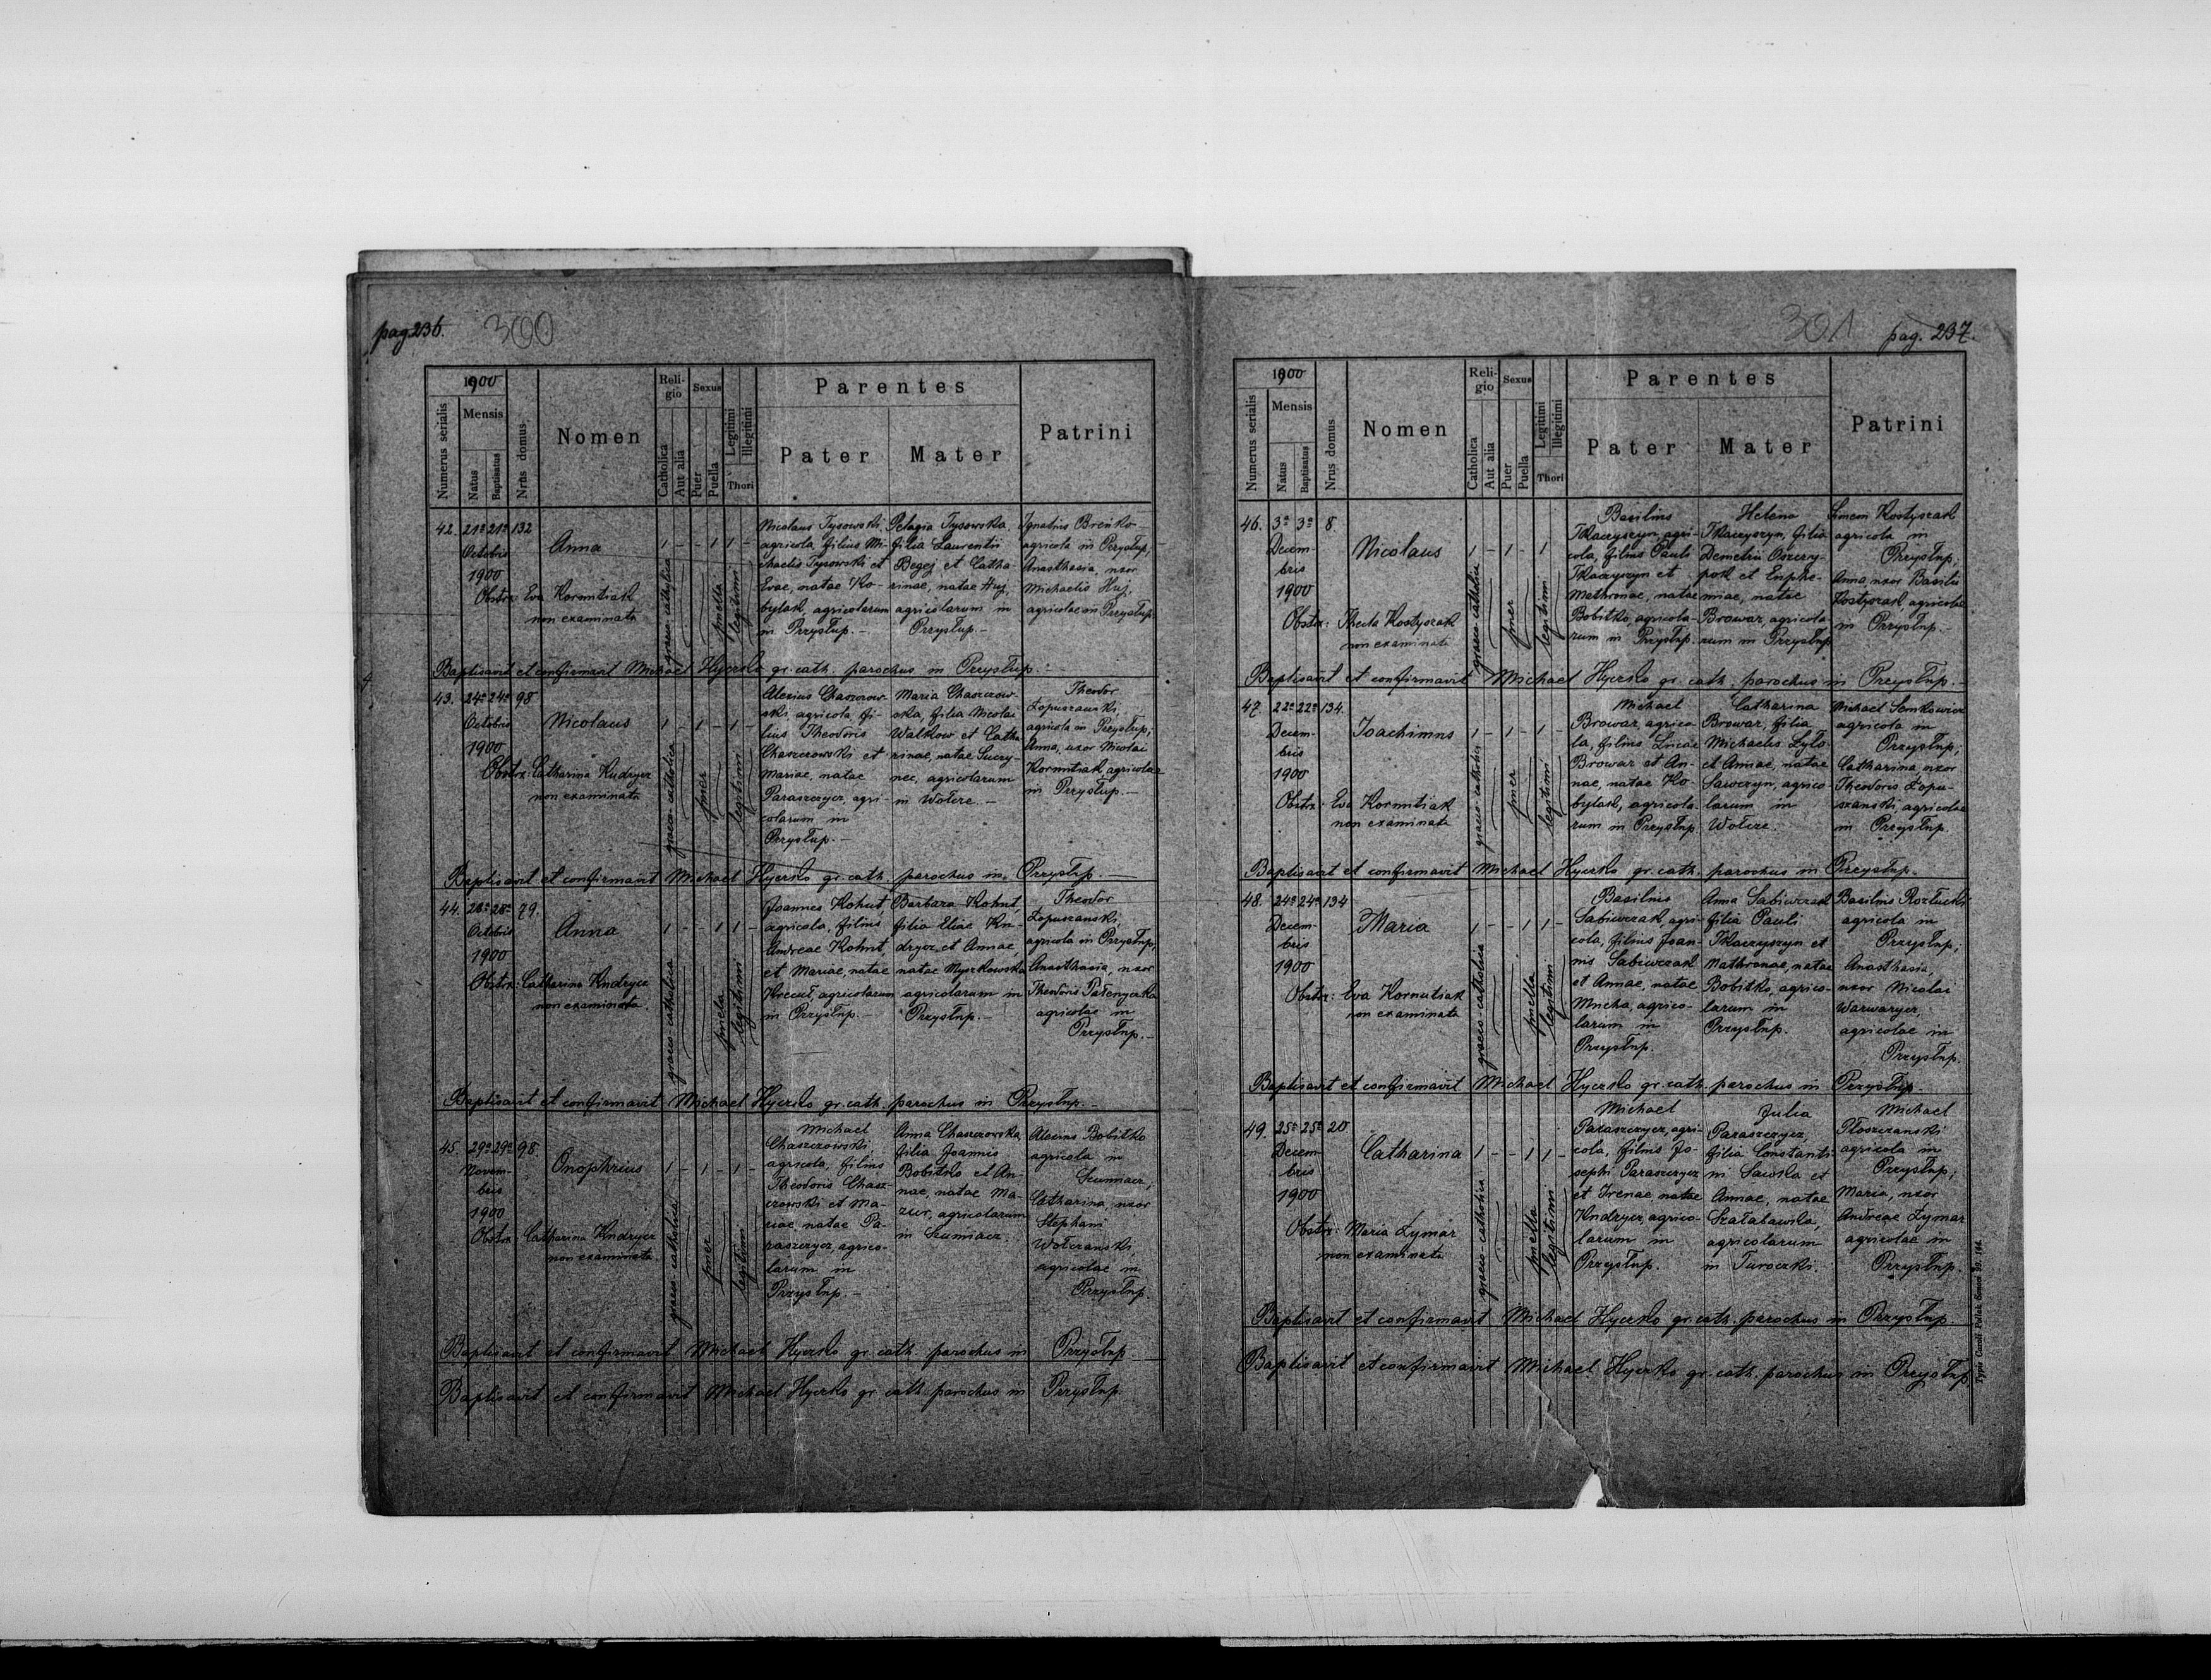 pag. 236.
300
1900
Numerus serialis
Mensis
Natus
Baptisatus
Nrus domus
Nomen
Reli-
gio
Catholica
Aut alia
Sexus
Puer
Puella
Legitimi
Illegitimi
Thori
Parentes
Pater
Mater
Patrini
42. 21a 21a 132
Octobris
1900
Anna
1 - - 1 1 -
Obstr. Eva Kornutiak
non examinata
graeco-catholica
puella
legitimi
Nicolaus Tysowski,
agricola, filius Mi-
chaelis Tysowski et
Evae, natae Ko-
bylak, agricolarum
in Przysłup. -
Pelagia Tysowska,
filia Laurentii
Begej et Catha-
rinae, natae Huj,
agricolarum in
Przysłup. -
Ignatius Breńko
agricola in Przysłup;
Anasthasia, uxor
Michaelis Huj,
agricolae in Przysłup.
Baptisavit et confirmavit Michael Hyczko gr. cath. parochus in Przysłup. -
43. 24a 24a 98
Octobris
1900
Nicolaus
1 - 1 - 1 -
Obstr: Catharina Kudrycz
non examinata
graeco-catholica
puer
legitimi
Alexius Chaszczow-
ski, agricola, fi-
lius Theodoris
Chaszczowski et
Mariae, natae
Paraszczycz, agri-
colarum in
Przysłup. -
Maria Chaszczow-
ska, filia Nicolai
Walkow et Catha-
rinae, natae
nec, agricolarum
in Wołcze. -
Theodor
Łopuszanski,
agricola in Przysłup;
Anna, uxor Nicolai
Kornutiak, agricolae
in Przysłup. -
Baptisavit et confirmavit Michael Hyczko gr. cath. parochus in Przysłup. -
44. 28a 28a 79.
Octobris
1900
Anna
1 - - 1 1 -
Obstr: Catharina Kudrycz
non examinata.
graeco-catholica
puella
legitimi
Joannes Kohut,
agricola, filius
Andreae Kohut,
et Mariae, natae
agricolarum
in Przysłup. -
Barbara Kohut,
filia Eliae Ku-
drycz et Annae,
natae Myszkowska
agricolarum in
Przysłup. -
Theodor
Łopuszanski,
agricola in Przysłup;
Anasthasia, uxor
Theodoris
agricolae in
Przysłup. -
Baptisavit et confirmavit Michael Hyczko gr. cath. parochus in Przysłup. -
45. 29a 29a 98.
Novem-
bris
1900
Onophrius
1 - 1 - 1 -
Obstr. Catharina Kudrycz
non examinata.
graeco-catholica
puer
legitimi
Michael
Chaszczowski,
agricola, filius
Theodoris Chasz-
czowski et Ma-
riae, natae Pa-
raszczycz, agrico-
larum in
Przysłup. -
Anna Chaszczowska,
filia Joannis
Bobitko et An-
nae, natae Ma-
zur, agricolarum
in Szumiacz.
Alexius Bobitko
agricola in
Szumiacz;
Catharina, uxor
Stephani
Wołczanski
agricolae in
Przysłup.
Baptisavit et confirmavit Michael Hyczko gr. cath. parochus in Przysłup
Baptisavit et confirmavit Michael Hyczko gr. cath. parochus in Przysłup.
301
pag. 237.
1900
Numerus serialis
Mensis
Natus
Baptisatus
Nrus domus
Nomen
Reli-
gio
Catholica
Aut alia
Sexus
Puer
Puella
Legitimi
Illegitimi
Thori
Parentes
Pater
Mater
Patrini
46. 3a 3a 8
Decem-
bris
1900
Nicolaus
1 - 1 - 1
Obstr: Thecla Kostyszak
non examinata
graeco-catholica
puer
legitimi
Basilius
Tkaczyszyn, agri-
cola, filius Pauli
Tkaczyszyn et
Mathronae, natae
Bobitko, agricola-
rum in Przysłup.
Helena
Tkaczyszyn, filia
Demetrii Oszczy-
pok et Euphe-
miae, natae
Browar, agricola-
rum in Przysłup.
Simeon Kostyszak
agricola in
Przysłup;
Anna, uxor Basilii
Kostyszak, agricolae
in Przysłup. -
Baptisavit et confirmavit Michael Hyczko gr. cath. parochus in Przysłup. -
47. 22a 22a 134.
Decem-
bris
1900
Joachimus
1 - 1 - 1 -
Obstr: Eva Kornutiak
non examinata
graeco-catholica
puer
legitimi
Michael
Browar, agrico-
la, filius Lucae
Browar et An-
nae, natae Ko-
bylak, agricola-
rum in Przysłup.
Catharina
Browar, filia
Michaelis Lylo
et Annae, natae
Sawczyn, agrico-
larum in
Wołcze.
Michael Sankowicz
agricola in
Przysłup;
Catharina uxor
Theodoris Łopu-
szanski, agricolae
in Przysłup.
Baptisavit et confirmavit Michael Hyczko gr. cath. parochus in Przysłup.
48. 24a 24a 134
Decem-
bris
1900
Maria
1 - - 1 1 -
Obstr: Eva Kornutiak
non examinata
graeco-catholica
puella
legitimi
Basilius
Sabiwczak, agri-
cola, filius Joan-
nis Sabiwczak
et Annae, natae
Mucha, agrico-
larum in
Przysłup.
Anna Sabiwczak
filia Pauli
Tkaczyszyn et
Mathronae, natae
Bobitko, agrico-
larum in
Przysłup.
Basilius Rozłucki
agricola in
Przysłup;
Anasthasia,
uxor Nicolai
Warwarycz,
agricolae in
Przysłup.
Baptisavit et confirmavit Michael Hyczko gr. cath. parochus in Przysłup.
49. 25a 25a 20
Decem-
bris
1900
Catharina
1 - - 1 1 -
Obstr: Maria Łymar
non examinata
graeco-catholica
puella
legitimi
Michael
Paraszczycz, agri-
cola, filius Jo-
sephi Paraszczycz
et Irenae, natae
Kudrycz, agrico-
larum in
Przysłup.
Julia
Paraszczycz,
filia Constanti-
ni Sawka et
Annae, natae
agricolarum
in Turoczki.
Michael
Płoszczanski
agricola in
Przysłup;
Maria, uxor
Andreae Łymar
agricolae in
Przysłup.
Baptisavit et confirmavit Michael Hyczko gr. cath. parochus in Przysłup.
Baptisavit et confirmavit Michael Hyczko gr. cath. parochus in Przysłup.
Typis Caroli Pollak Sanoci